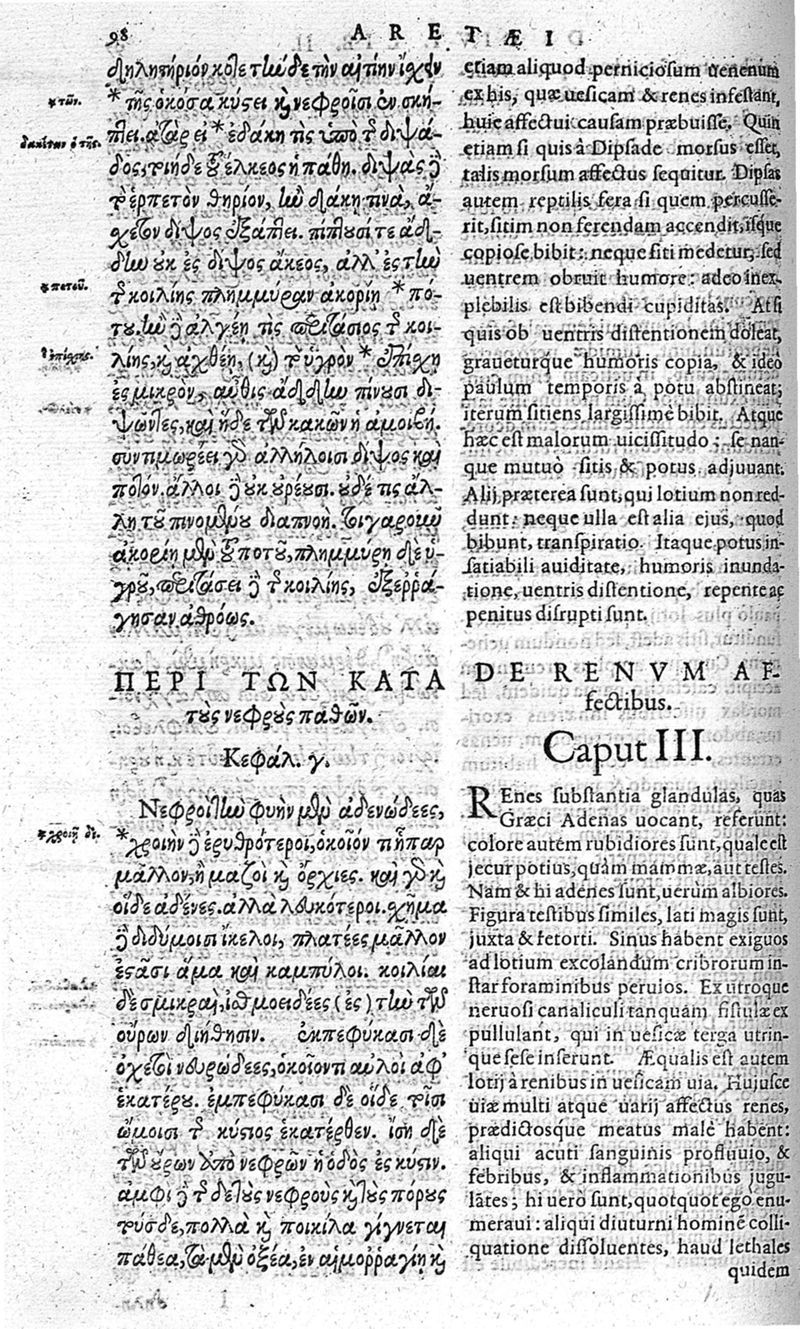 98
ARETÆI
δηλητήριόν κοτε τὼυδε τὴν αἰτίην ἴσχειν
* τῆς ὁκόσα κύστει καὶ νεφροῖσι ἐνσκή-
πτει. ἀτὰρ εἰ * ἐδάκη τις ὑπὸ τῆς διψά-
δος, τοιῇδε τοῦ ἕλκεος ἡ πάθη. διψὰς δὲ
τὸ ἑρπετὸν θηρίον, ἢν δάκῃ τινὰ, ἄ-
σχετον δίψος ἐξάπτει. πίνουσί τε ἄδ-
δην οὐκ ἐς δίψος ἄκεος, ἀλλ' ἐς τὴν
τῆς κοιλίης πλημμύραν ἀκορίῃ * πό-
του. ἢν δὲ ἀλγέῃ τις περιτάσιος τῆς κοι-
λίης, καὶ ἀχθέῃ, (καὶ) τὸ ὑγρὸν * ἐπίσχῃ
ἐς μικρὸν, αὖθις ἄδδην πίνουσι δι-
ψῶντες, καὶ ἥδε τῶν κακῶν ἡ ἀμοιβή.
συντιμωρέει γὰρ ἀλλήλοισι δίψος καὶ
ποτόν. ἄλλοι δὲ οὐκ οὐρέουσι. οὐδέ τις ἄλ-
λη τοῦ πινομένου διαπνοή. τοιγαροῦν
ἀκορίῃ μὲν τοῦ ποτοῦ, πλημμύρῃ δὲ ὑ-
γροῦ, περιτάσει δὲ τῆς κοιλίης, ἐξερρά-
γησαν ἀθρόως.
ΠΕΡΙ ΤΩΝ ΚΑΤΑ
τοὺς νεφροὺς παθῶν.
Κεφάλ. γ.
Νεφροὶ τὴν φυὴν μὲν ἀδενώδεες,
* χροιὴν δὲ ἐρυθρότεροι, ὁκοῖον τι ἧπαρ
μᾶλλον, ἢ μαζοὶ καὶ ὄρχιες. καὶ γὰρ καὶ
οἵδε ἀδένες. ἀλλὰ λευκότεροι. σχῆμα
δὲ διδύμοισι ἴκελοι, πλατέες μᾶλλον
ἔασι ἅμα καὶ καμπύλοι. κοιλίαι
δὲ σμικραὶ, ἠθμοειδέες (ἐς) τὴν τῶν
οὔρων διήθησιν. ἐκπεφύκασι δὲ
ὀχετοὶ νευρώδεες, ὁκοῖόν τι αὐλοὶ ἀφ'
ἑκατέρου. ἐμπεφύκασι δὲ οἵδε τοῖσι
ὤμοισι τῆς κύστιος ἑκατέρθεν. ἴση δὲ
τῶν οὔρων ἀπὸ νεφρῶν ἡ ὁδὸς ἐς κύστιν.
ἀμφὶ δὲ τούσδε τοὺς νεφροὺς καὶ τοὺς πόρους
τούσδε, πολλὰ καὶ ποικίλα γίγνεται
πάθεα, τὰ μὲν ὀξέα, ἐν αἱμορραγίῃ καὶ
etiam aliquod perniciosum uenenum
ex his, quæ uesicam & renes infestant,
huic affectui causam præbuisse. Quin
etiam si quis à Dipsade morsus esset,
talis morsum affectus sequitur. Dipsas
autem reptilis fera si quem percusse-
rit, sitim non ferendam accendit, isque
copiose bibit: neque siti medetur, sed
uentrem obruit humore: adeo inex-
plebilis est bibendi cupiditas. At si
quis ob uentris distentionem doleat,
graueturque humoris copia, & ideo
paulum temporis à potu abstineat;
iterum sitiens largissime bibit. Atque
hæc est malorum uicissitudo; se nan-
que mutuò sitis & potus adjuuant.
Alij præterea sunt, qui lotium non red-
dunt: neque ulla est alia ejus, quod
bibunt, transpiratio. Itaque potus in-
satiabili auiditate, humoris inunda-
tione, uentris distentione, repente ac
penitus disrupti sunt.
DE RENVM AF-
fectibus.
Caput III.
REnes substantia glandulas, quas
Græci Adenas uocant, referunt:
colore autem rubidiores sunt, quale est
jecur potius, quàm mammæ, aut testes.
Nam & hi adenes sunt, uerùm albiores.
Figura testibus similes, lati magis sunt,
juxta & retorti. Sinus habent exiguos
ad lotium excolandum cribrorum in-
star foraminibus peruios. Ex utroque
neruosi canaliculi tanquam fistulæ ex
pullulant, qui in uesicæ terga utrin-
que sese inserunt. Æqualis est autem
lotij à renibus in uesicam uia. Hujusce
uiæ multi atque uarij affectus renes,
prædictosque meatus malè habent:
aliqui acuti sanguinis profluuio, &
febribus, & inflammationibus jugu-
lātes; hi uerò sunt, quotquot ego enu-
meraui: aliqui diuturni hominē colli-
quatione dissoluentes, haud lethales
quidem
*τῶν.
*ποτοῦ.
*χροιῇ δὲ.